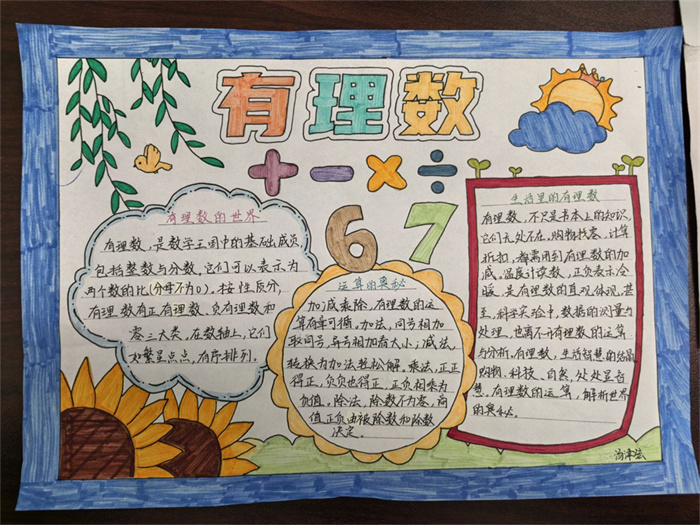 有理数
+ - × ÷
6 7
有理数的世界
有理数,是数学王国中的基础成员
包括整数与分数,它们可以表示为
两个数的比(分母不为0)。按性质分,
有理数有正有理数、负有理数和
零三大类,在数轴上,它们
如繁星点点,有序排列。
运算的奥秘
加减乘除,有理数的运
算有章可循。加法,同号相加
取同号,异号相加看大小;减法,
转换为加法轻松解。乘法,正正
得正,负负也得正,正负相乘为
负值。除法,除数不为零,商
值正负由被除数和除数
决定。
生活里的有理数
有理数,不只是书本上的知识,
它们无处不在,购物找零、计算
折扣,都需用到有理数的加
减。温度计读数,正负表示冷
暖,是有理数的直观体现。甚
至,科学实验中,数据的测量与
处理,也离不开有理数的运算
与分析。有理数,生活智慧的结晶
购物、科技、自然,处处显智
慧。有理数的运算,解析世界
的奥秘。